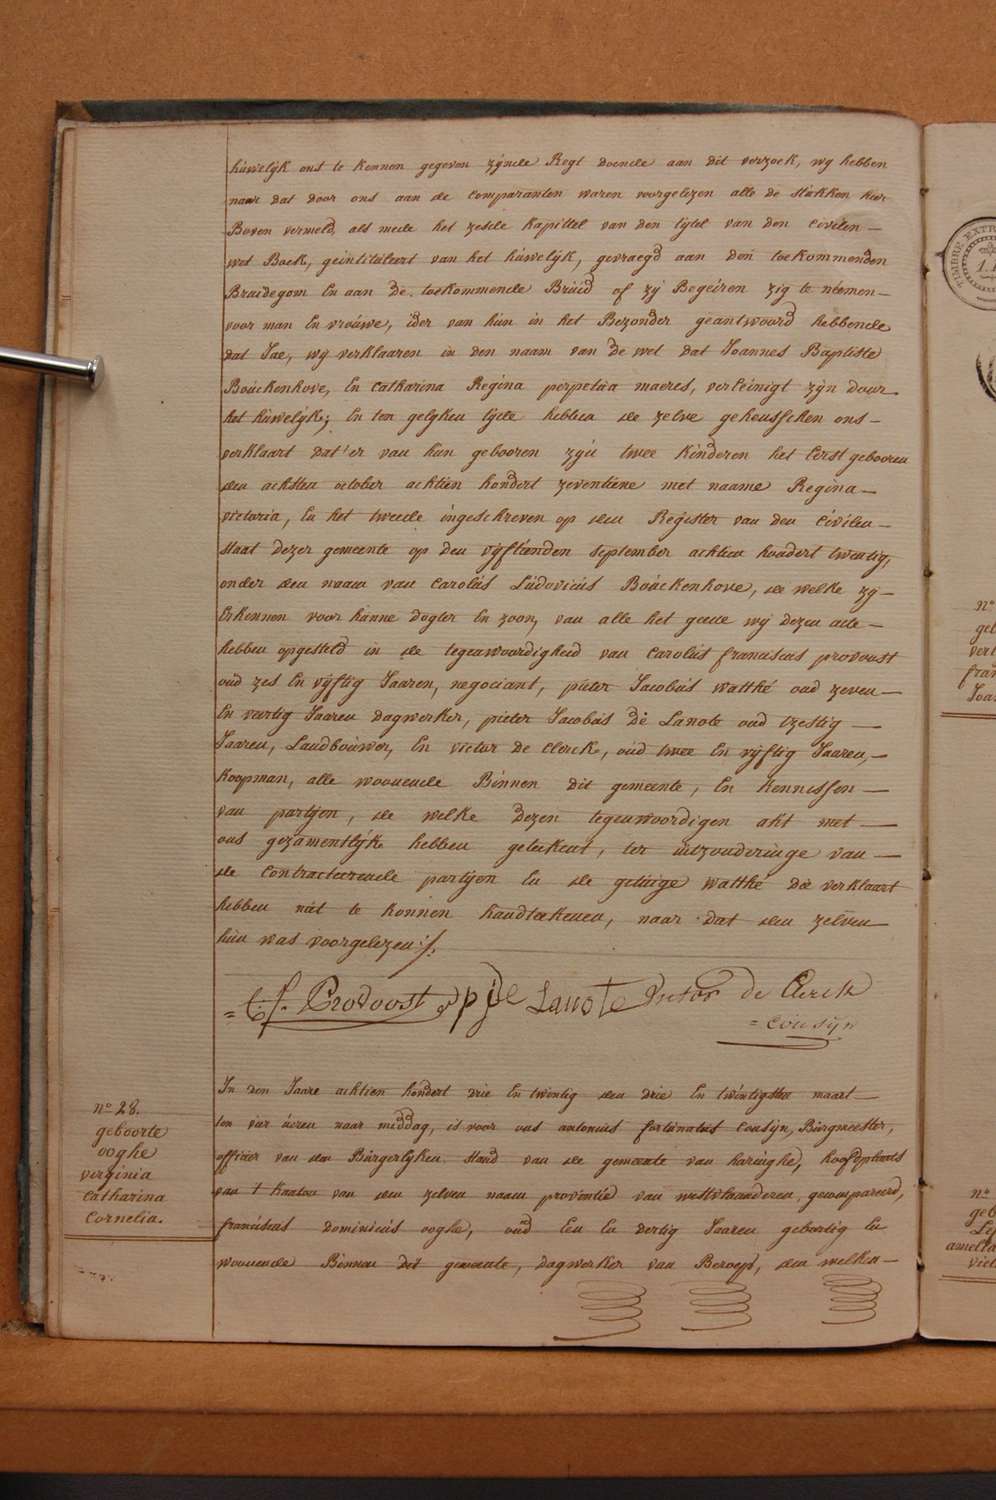 húwelÿk ons te kennen gegeven zÿnde Regt doende aan dit verzoek, wy hebben
naar dat door ons aan de comparanten waren voorgelezen alle de stukken hier
Boven vermeld, als mede het zesde kapittel van den tytel van den civilen —
wet Boek, geintituleert van het húwelÿk, gevraegd aan den toekommenden
Bruidegom En aan De toekommende Brúid of zÿ Begeiren zig te neemen —
voor man En vroúwe, ider van hun in het Bezonder geantwoord hebbende
dat Jae, wy verklaaren in den naam van De wet dat Joannes Baptiste
Boúckenhove, En Catharina Regina perpetúa maeres, vereinigt zÿn door
het húwelÿk; En ten gelyken tyde hebben de zelve geheusschen ons —
verklaart dat'er van hun gebooren zÿn twee Kinderen het Eerst gebooren
den achsten october achtien hondert zeventiene met naame Regina —
victoria, En het tweede ingeschreven op den Register van den Civilen —
staat dezer gemeente op den vÿftienden september achtien hondert twentig,
onder den naam van Carolús Lúdovicús Boúckenhove, de welke zÿ —
Erkennen voor húnne dogter En zoon, van alle het geene wÿ dezen acte —
hebben opgesteld in de tegenwoordigheid van Carolús franciscus provoost
oúd zes En vÿftig Jaaren, negociant, pieter Jacobús watthé oud zeven —
En veertig Jaaren dagwerker, pieter Jacobús De Lanote oud tzestig —
Jaaren, Landboúwer, En victor de Clerck, oúd twee En vÿftig Jaaren, —
Koopman, alle woonende Binnen dit gemeente, En kennissen —
van partÿen, de welke dezen tegenwoordigen akt met —
ons gezamentlÿk hebben geteekent, ter uitzonderinge van —
de contracteerende partÿen En de getúige watthé die verklaart
hebben niet te konnen handteekenen, naar dat den zelven
hún was voorgelezen ./.
= C. f. Provoost p j de Lanote Victor de Clerck
= Cousyn
N° 28.
geboorte
ooghe
virginia
Catharina
Cornelia.
In den Jaare achtien hondert drie En twintig den drie En twintigsten maart —
ten vier úeren naar middag, is voor ons antonius fortunatus Cousÿn, Búrgmeester,
officier van den Búrgerlÿken stand van de gemeente van haringhe, hoofdplaats
van 't kanton van den zelven naam provintie van westvlaanderen, gecompareerd,
franciscus dominicús ooghe, oúd Een En dertig Jaaren gebortig En
woonende Binnen dit gemeente, dagwerker van Beroep, den welken —
TIMBRE EXTR
N°
geb
ver
fran
Joa
N°
geb
Lef
amelia
vict